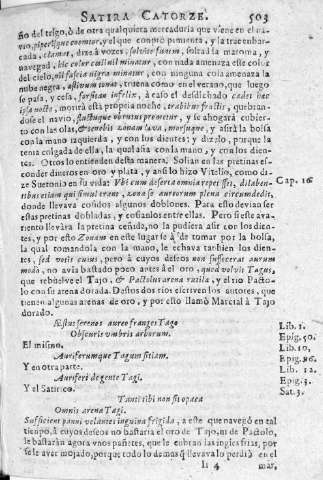 SATIRA CATORZE. 503
ño del trigo, ò de otra qualquiera mercaduria que viene en el na-
vio, piperisque coemtor, y el que comprò pimienta, y la trae embar-
cada, clamat, dize à vozes, solvite funem, soltad la maroma, y
navegad, hic color cœli nil minatur, con nada amenaza este color
del cielo, nil fascia nigra minatur, con ninguna cola amenaza la
nube negra, æstivum tonat, truena como en el verano, que luego
se passa, y cesa, forsitan infelix, à caso el desdichado cadet hac
ipsa nocte, morirà esta propria noche, trabibus fractis, quebran-
dose el navio, fluctuque obruetur premetur, y se ahogarà cubier-
to con las olas, & tenebit zonam læva, morsuque, y asirà la bolsa
con la mano izquierda, y con los dientes; y dizelo, porque la
tenia colgada de ella, la qual asia con la mano, y con los dien-
tes. Otros lo entienden desta manera. Solian en las pretinas es-
conder dineros en oro y plata, y ansi lo hizo Vitelio, como di-
ze Suetonio en su vida: Vbi cum deserta omnia repetisset, dilaben- Cap. 16
tibus etiam qui simul erant, zona se aureorum plena circumdedit,
donde llevava cosidos algunos doblones. Para esto devian ser
estas pretinas dobladas, y cosianlos entre ellas. Pero si este ava-
riento llevàra la pretina ceñida, no la pudiera asir con los dien-
tes, y por esto Zonam en este lugar se à de tomar por la bolsa,
la qual tomandola con la mano, le echava tambien los dien-
tes, sed votis cuius, pero à cuyos deseos non suffecerat aurum
modo, no avia bastado poco antes à el oro, quod volvit Tagus,
que rebuelve el Tajo, & Pactolus arena rutila, y el rio Pacto-
lo con su arena dorada. Destos dos rios escriven los autores, que
tienen algunas arenas de oro, y por esto llamò Marcial à Tajo
dorado.
Æstus serenos aureo franges Tago Lib. 1.
Obscurus umbris arborum. Epig. 50.
El mismo. Lib. 10.
Auriferumque Tagum sitiam. Epig. 96.
Y en otra parte. Lib. 12.
Auriferi de gente Tagi. Epig. 3.
Y el Satirico. Sat. 3.
Tanti tibi non sit opaca
Omnis arena Tagi.
Sufficient panni velantes inguina frigida, a este que navegò en tal
tiempo, à cuyos deseos no bastaria el oro de Tajo, ni de Pactolo,
le bastaràn agora unos pañetes, que le cubran las ingles frias, por
se le aver mojado, porque todo lo demas q llevava lo perdiò en el
Ii 4 mar,